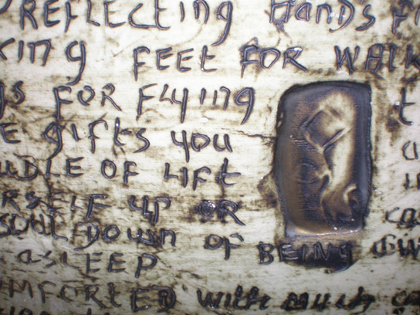 REFLECTING HANDS
KING FEET FOR WALK
GS FOR FLYING
E GIFTS YOU
UDLE OF LIFT
RSELF UP OR
DOWN OF BEING
ASLEEP
MFORTED WITH